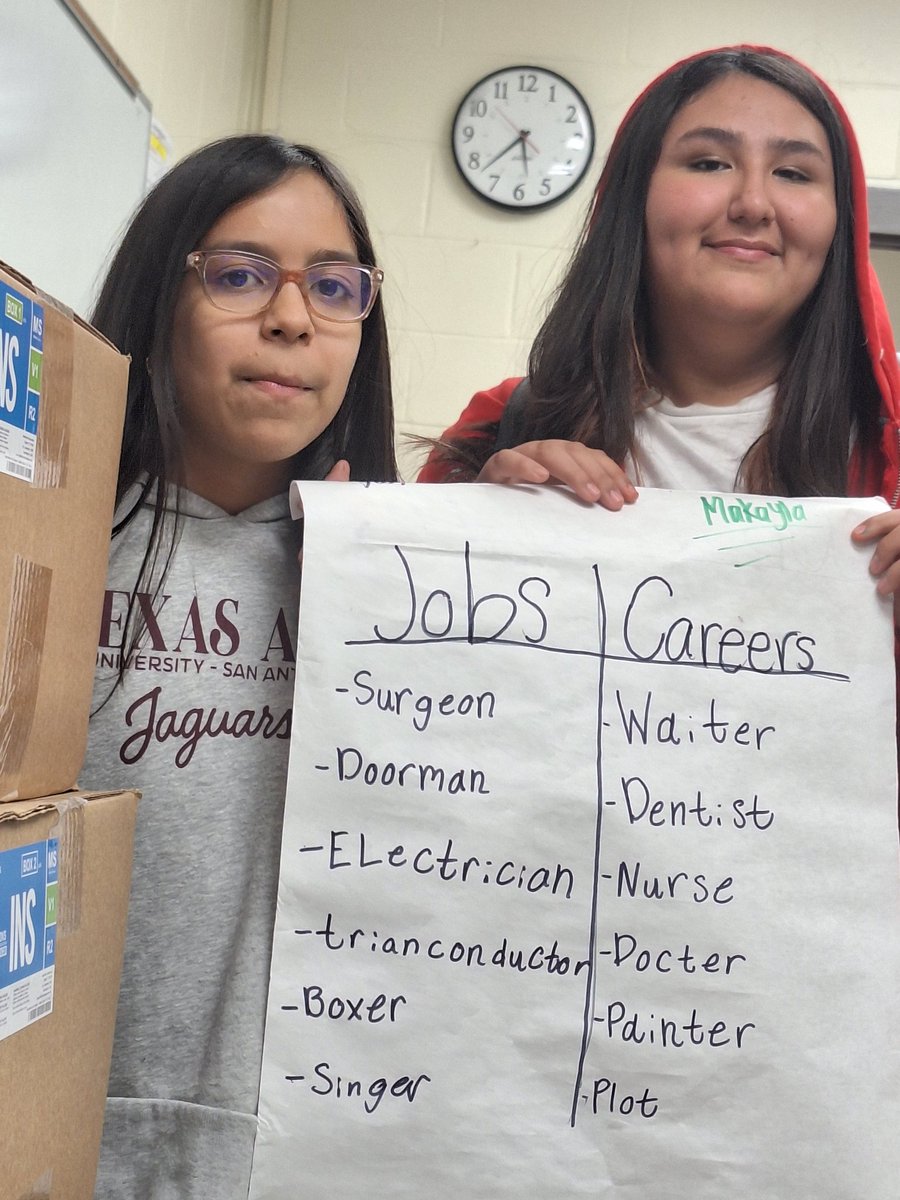 12
1
2
5
6
7
8
9
10
11
BOX 1
MS
V1
R2
NS
EXAS A
UNIVERSITY - SAN ANT
Jaguars
Makayla
Jobs
Careers
-Surgeon
-Waiter
-Doorman
-Dentist
-ELectrician
-Nurse
-trianconductor
-Docter
-Boxer
-Painter
-Singer
-Plot
BOX 2
MS
V1
R2
INS